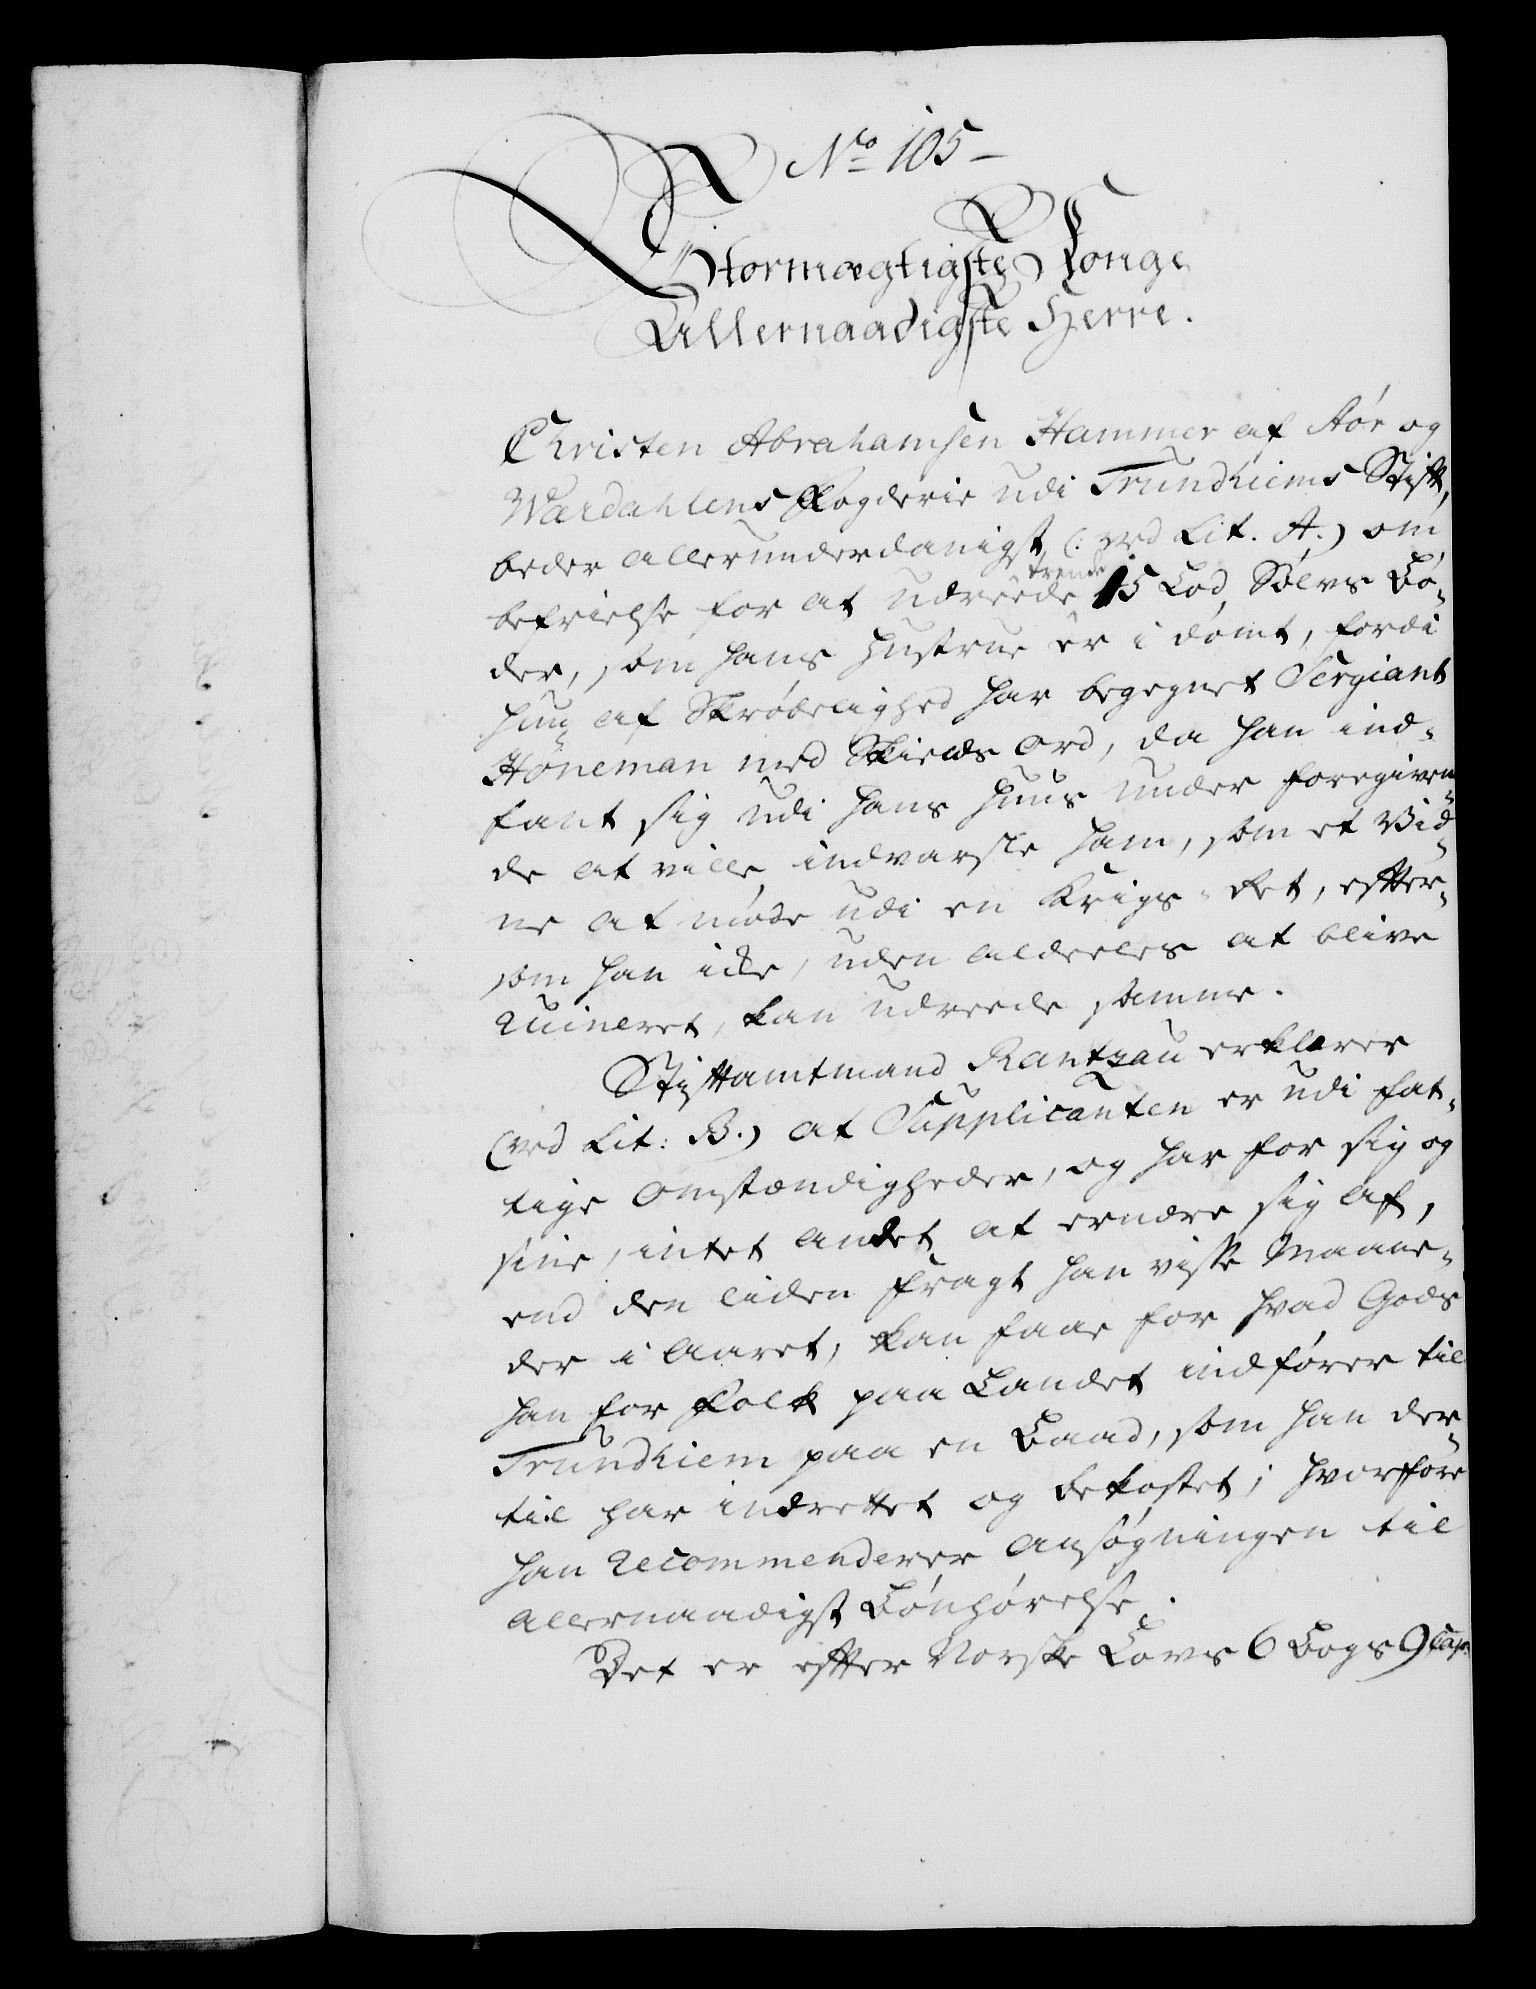 No 105 –
Stormægtigste Konge
Allernaadigste Herre.
Christen Abrahamsen Hammer af Stór og
Wærdahlens Fogderie udi Trundhiems Stift,
beder allerunderdanigst (: ved Lit. A.) om
befrielse for at udreede trende 15 Lod Sólvs Bó-
der, som hans Hustrue er i dómt, fordi
hun af Skróbelighed har begegnet Sergiant
Hóneman med Skields Ord, da han ind-
fant sig udi hans Huus under foregiven-
de at ville indvarsle ham, som et Vid-
ne at móde udi en Krigs-Ret, efter-
som han icke, uden aldeeles at blive
Ruineret, kan udreede samme.
Stiftamtmand Rantzau erklærer
(ved Lit: B.) at Supplicanten er udi fat-
tige Omstændigheder, og har for sig og
sine, intet andet at ernære sig af,
end den liden Fragt han visse Maane-
der i Aaret, kan faae for hvad Gods
han for Folk paa Landet indfórer til
Trundhiem paa en Baad, som han der-
til har indrettet og bekostet; hvorfore
han Recommenderer Ansógningen til
allernaadigst Bónhórelse.
Det er efter Norske Lovs 6 Bogs 9 Cap: